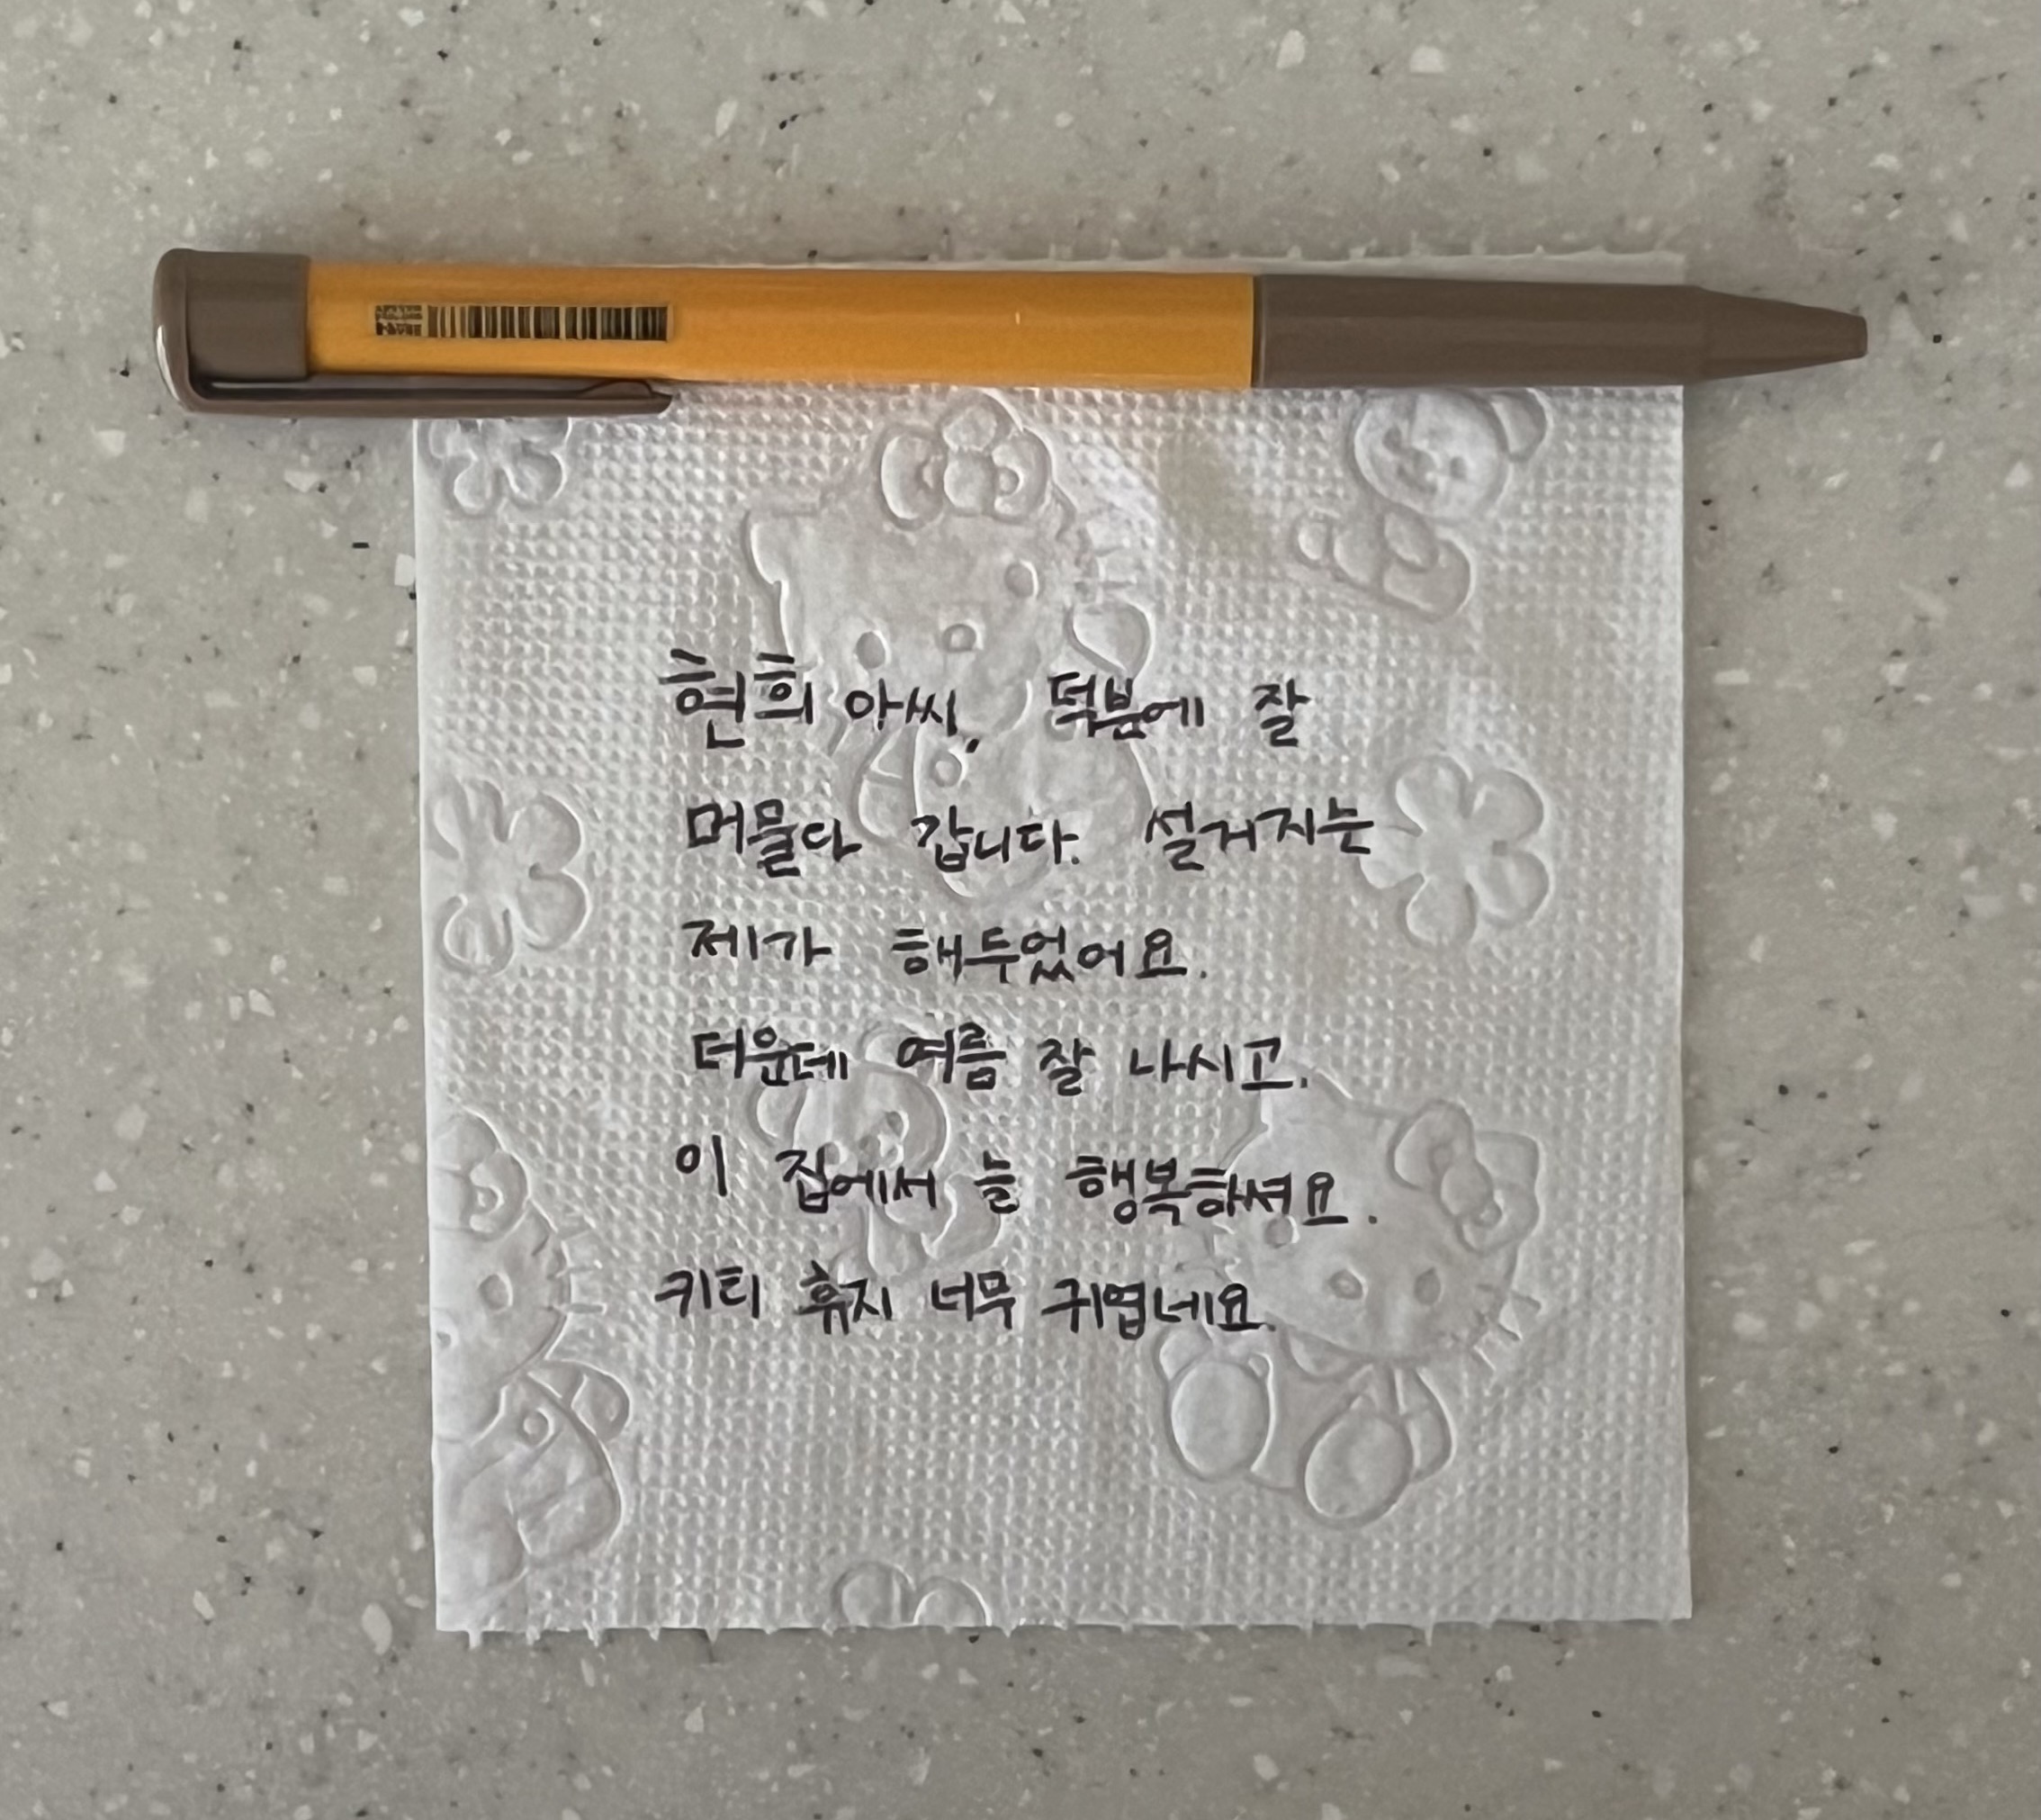 현희 아씨, 덕분에 잘
머물다 갑니다. 설거지는
제가 해두었어요.
더운데 여름 잘 나시고.
이 집에서 늘 행복하셔요.
키티 휴지 너무 귀엽네요.